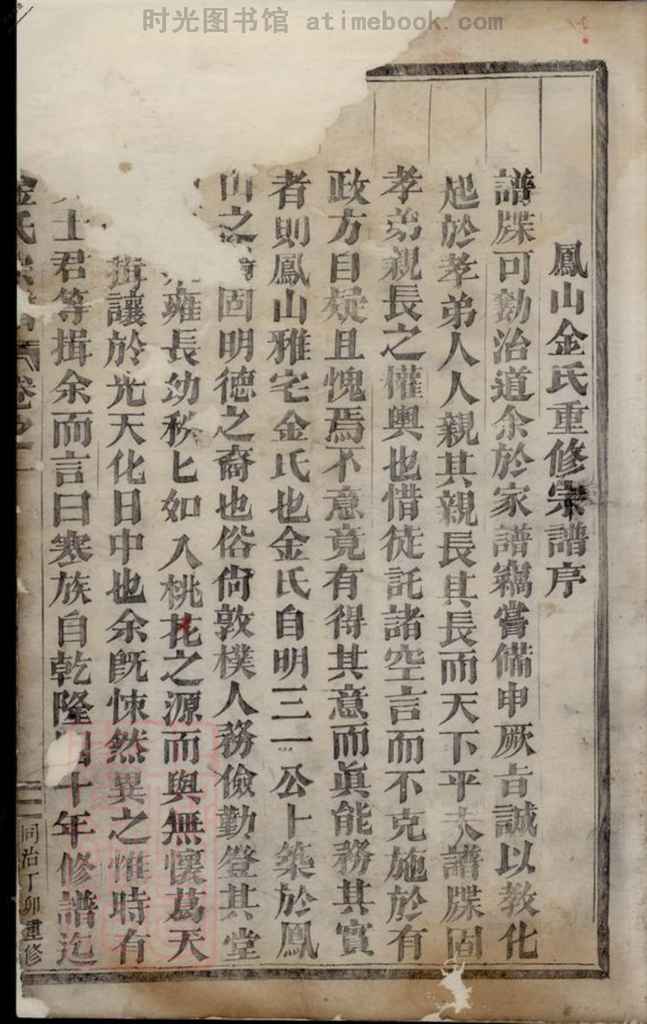 时光图书馆 atimebook.com
鳳山金氏重修宗譜序
譜牒可勷治道余於家譜竊嘗備申厥旨誠以教化
起於孝弟人人親其親長其長而天下平夫譜牒固
孝弟親長之權輿也惜徒託諸空言而不克施於有
政方自疑且愧焉不意竟有得其意而眞能務其實
者則鳳山雅宅金氏也金氏自明三一公卜築於鳳
山之 固明德之裔也俗尙敦樸人務儉勤登其堂
雍長幼秩匕如入桃花之源而與無懷葛天
揖讓於光天化日中也余旣悚然異之惟時有
士君等揖余而言曰寒族自乾隆四十年修譜迄
金氏宗 卷之
同治丁卯重修